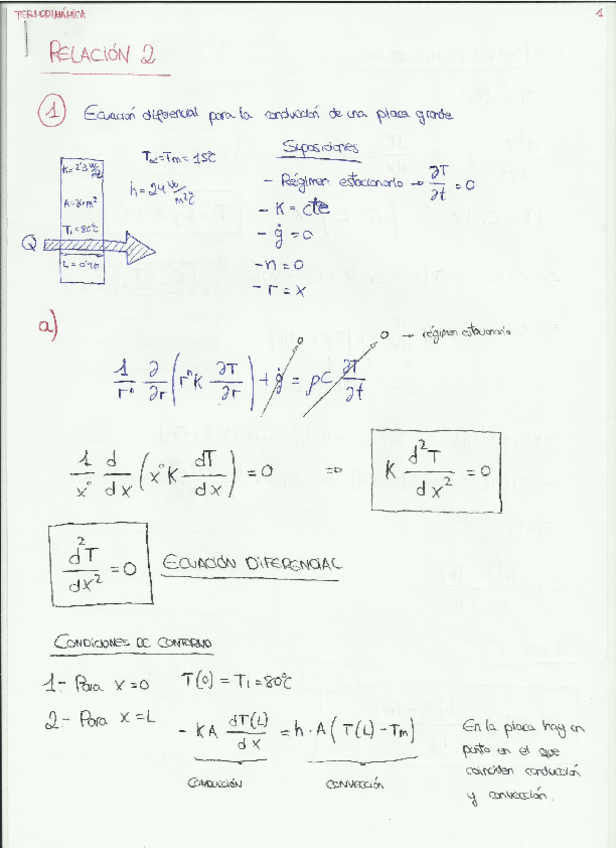 TERMODINÁMICA 1
RELACIÓN 2
1 Ecuación diferencial para la conducción de una placa grande
K=2'3 W/m°C
T∞=Tm=15°C
h=24 W/m²°C
T1=80°C
Q
L=0'4m
Suposiciones
- Régimen estacionario → ∂T/∂t = 0
- K = cte
- ġ = 0
- n = 0
- r = x
a)
0 0 → régimen estacionario
1/rⁿ ∂/∂r (rⁿ K ∂T/∂r) + ġ = ρC ∂T/∂t
1/x⁰ d/dx (x⁰ K dT/dx) = 0 ⇒ K d²T/dx² = 0
d²T/dx² = 0 ECUACIÓN DIFERENCIAL
CONDICIONES DE CONTORNO
1- Para x=0 T(0) = T1 = 80°C
2- Para x=L - KA dT(L)/dx = h·A (T(L) - Tm)
CONDUCCIÓN CONVECCIÓN
En la placa hay un
punto en el que
coinciden conducción
y convección.